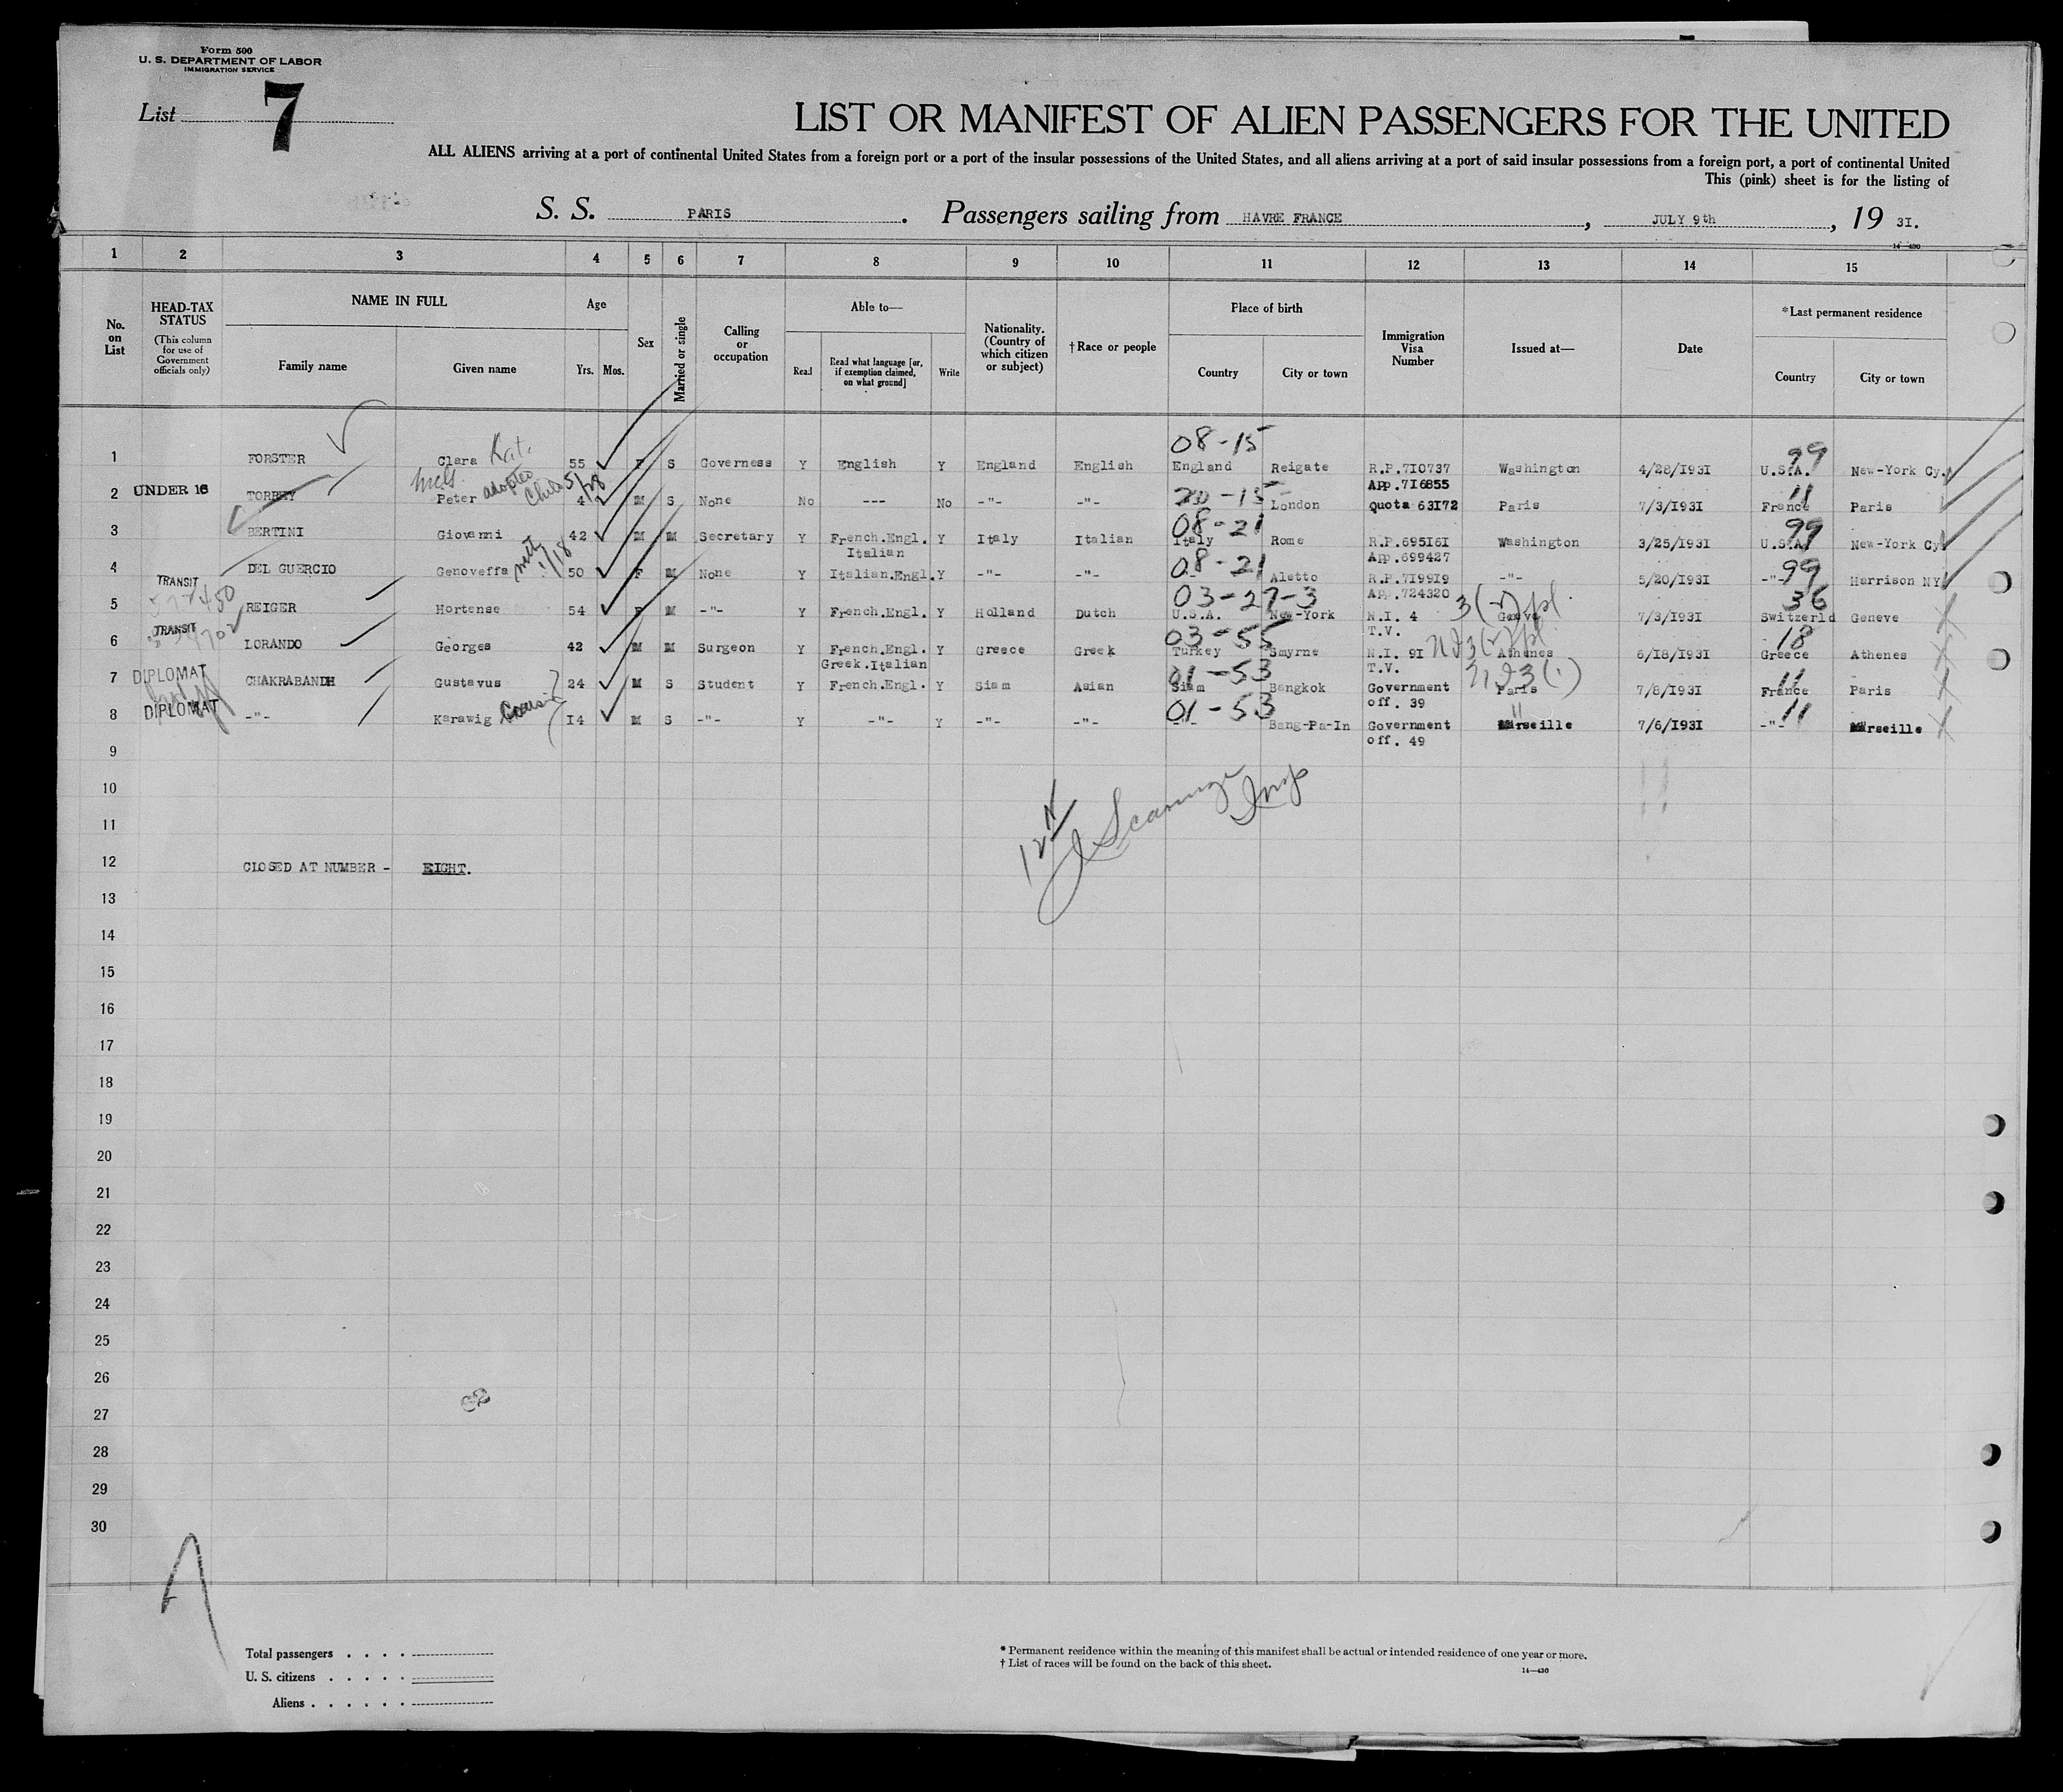 Form 500
U. S. DEPARTMENT OF LABOR
IMMIGRATION SERVICE
List 7
LIST OR MANIFEST OF ALIEN PASSENGERS FOR THE UNITED
ALL ALIENS arriving at a port of continental United States from a foreign port or a port of the insular possessions of the United States, and all aliens arriving at a port of said insular possessions from a foreign port, a port of continental United
This (pink) sheet is for the listing of
S. S. PARIS. Passengers sailing from HAVRE FRANCE, JULY 9th, 19 31.
14—430
1 2 3 4 5 6 7 8 9 10 11 12 13 14 15
No. on List
HEAD-TAX STATUS
(This column for use of Government officials only)
NAME IN FULL
Family name Given name
Age
Yrs. Mos.
Sex
Married or single
Calling or occupation
Able to—
Read
Read what language [or, if exemption claimed, on what ground]
Write
Nationality. (Country of which citizen or subject)
†Race or people
Place of birth
Country City or town
Immigration Visa Number
Issued at—
Date
*Last permanent residence
Country City or town
08-15 99
1 FORSTER Clara 55 F S Governess Y English Y England English England Reigate R.P.710737 Washington 4/28/1931 U.S.A. New-York Cy.
App.716855
adopted child 5/28
2 UNDER 16 TORREY Peter 4 M S None No --- No -"- -"- 20-15 London Quota 63172 Paris 7/3/1931 France 11 Paris
08-21 99
3 BERTINI Giovanni 42 M M Secretary Y French.Engl. Y Italy Italian Italy Rome R.P.695161 Washington 3/25/1931 U.S.A. New-York Cy
Italian App.699427
08-21 99
4 DEL GUERCIO Genoveffa 50 F M None Y Italian.Engl. Y -"- -"- -"- Aletto R.P.719919 -"- 5/20/1931 -"- Harrison NY
TRANSIT App.724320
03-27-3 36
5 REIGER Hortense 54 F M -"- Y French.Engl. Y Holland Dutch U.S.A. New-York N.I. 4 Geneve 7/3/1931 Switzerld Geneve
TRANSIT T.V.
03-55 18
6 LORANDO Georges 42 M M Surgeon Y French.Engl. Y Greece Greek Turkey Smyrne N.I. 91 Athenes 6/18/1931 Greece Athenes
Greek.Italian T.V.
DIPLOMAT 01-53 11
7 CHAKRABANDH Gustavus 24 M S Student Y French.Engl. Y Siam Asian Siam Bangkok Government Paris 7/8/1931 France Paris
off. 39
DIPLOMAT Cousin 01-53 11
8 -"- Karawig 14 M S -"- Y -"- Y -"- -"- -"- Bang-Pa-In Government Marseille 7/6/1931 -"- Marseille
off. 49
9
10
11
12 CLOSED AT NUMBER - EIGHT.
13
14
15
16
17
18
19
20
21
22
23
24
25
26
27
28
29
30
Total passengers
U. S. citizens
Aliens
* Permanent residence within the meaning of this manifest shall be actual or intended residence of one year or more.
† List of races will be found on the back of this sheet.
14—430